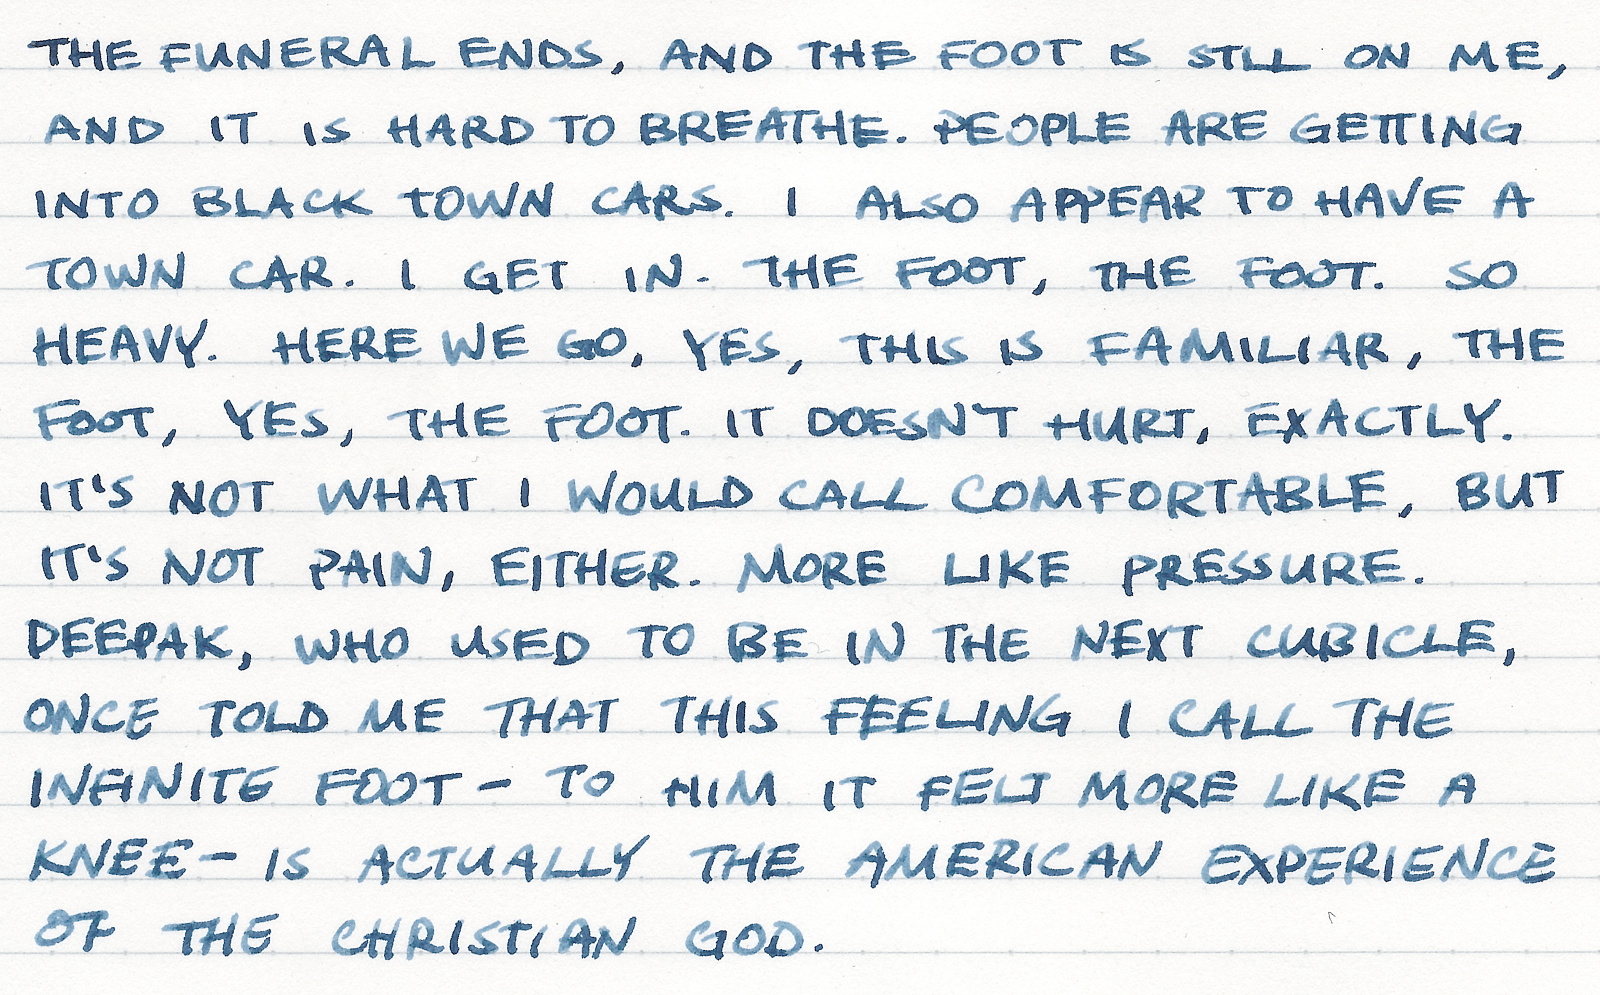 THE FUNERAL ENDS, AND THE FOOT IS STILL ON ME,
AND IT IS HARD TO BREATHE. PEOPLE ARE GETTING
INTO BLACK TOWN CARS. I ALSO APPEAR TO HAVE A
TOWN CAR. I GET IN. THE FOOT, THE FOOT. SO
HEAVY. HERE WE GO, YES, THIS IS FAMILIAR, THE
FOOT, YES, THE FOOT. IT DOESN'T HURT, EXACTLY.
IT'S NOT WHAT I WOULD CALL COMFORTABLE, BUT
IT'S NOT PAIN, EITHER. MORE LIKE PRESSURE.
DEEPAK, WHO USED TO BE IN THE NEXT CUBICLE,
ONCE TOLD ME THAT THIS FEELING I CALL THE
INFINITE FOOT - TO HIM IT FELT MORE LIKE A
KNEE - IS ACTUALLY THE AMERICAN EXPERIENCE
OF THE CHRISTIAN GOD.